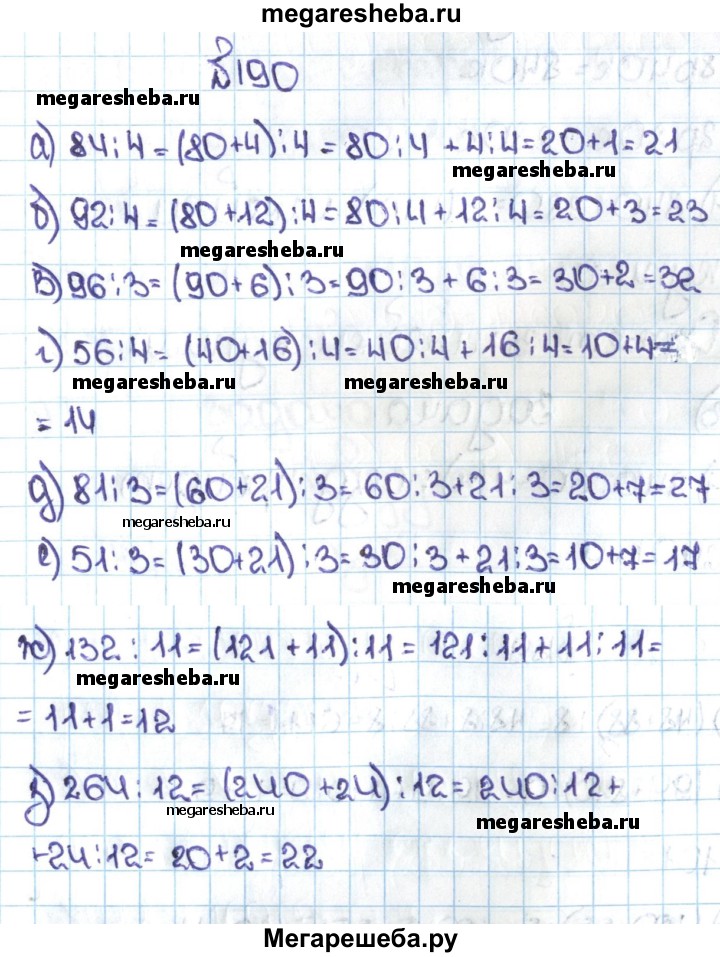 megaresheba.ru
№190
megaresheba.ru
а) 84:4=(80+4):4=80:4+4:4=20+1=21
megaresheba.ru
б) 92:4=(80+12):4=80:4+12:4=20+3=23
megaresheba.ru
в) 96:3=(90+6):3=90:3+6:3=30+2=32
г) 56:4=(40+16):4=40:4+16:4=10+4=
megaresheba.ru megaresheba.ru
=14
д) 81:3=(60+21):3=60:3+21:3=20+7=27
megaresheba.ru
е) 51:3=(30+21):3=30:3+21:3=10+7=17
megaresheba.ru
ж) 132:11=(121+11):11=121:11+11:11=
megaresheba.ru
=11+1=12
з) 264:12=(240+24):12=240:12+
megaresheba.ru
megaresheba.ru
+24:12=20+2=22
Мегарешеба.ру